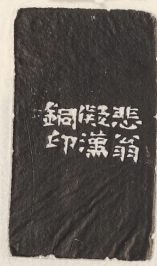 悲翁
儗漢
銅印